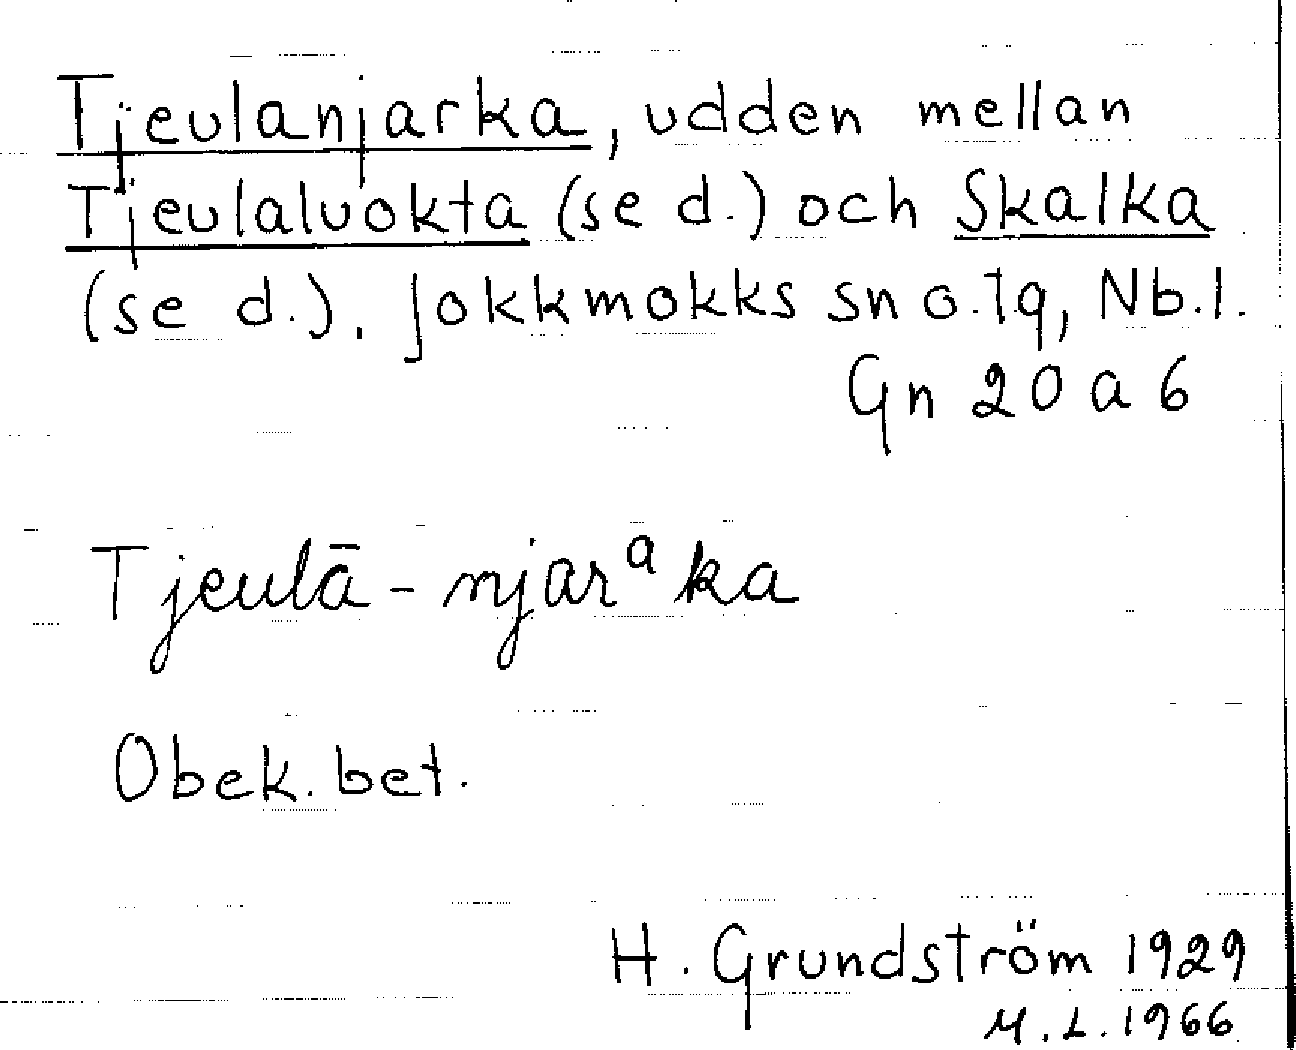 Tjeulanjarka, udden mellan
Tjeulaluokta (se d.) och Skalka
(se d.). Jokkmokks sn o. tg, Nb.l.
Gn 20 a 6
Tjeulā-njarᵃka
Obek. bet.
H. Grundström 1929
M.L. 1966